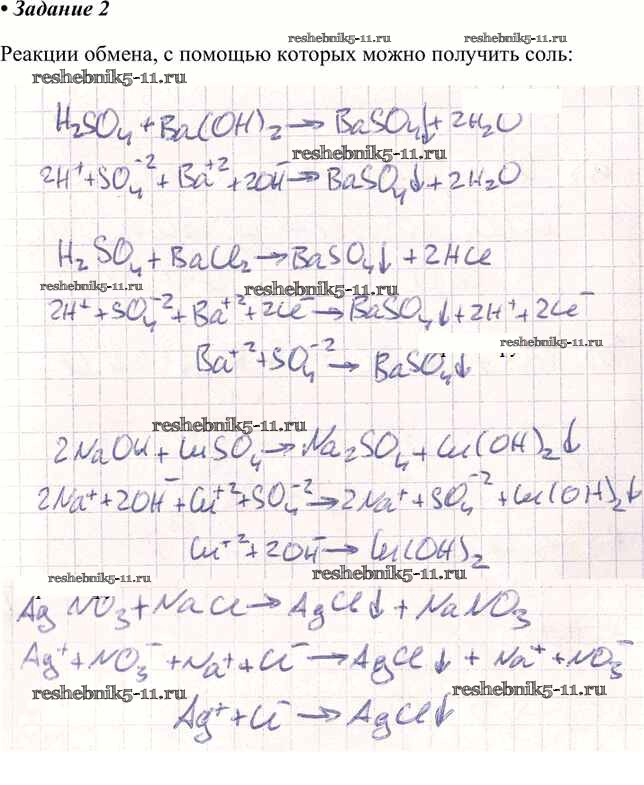 • Задание 2
reshebnik5-11.ru reshebnik5-11.ru
Реакции обмена, с помощью которых можно получить соль:
reshebnik5-11.ru reshebnik5-11.ru
H₂SO₄ + Ba(OH)₂ → BaSO₄↓ + 2H₂O
reshebnik5-11.ru
2H⁺ + SO₄⁻² + Ba⁺² + 2OH⁻ → BaSO₄↓ + 2H₂O
H₂SO₄ + BaCl₂ → BaSO₄↓ + 2HCl
reshebnik5-11.ru reshebnik5-11.ru
2H⁺ + SO₄⁻² + Ba⁺² + 2Cl⁻ → BaSO₄↓ + 2H⁺ + 2Cl⁻
reshebnik5-11.ru
Ba⁺² + SO₄⁻² → BaSO₄↓
reshebnik5-11.ru
2NaOH + CuSO₄ → Na₂SO₄ + Cu(OH)₂↓
2Na⁺ + 2OH⁻ + Cu⁺² + SO₄⁻² → 2Na⁺ + SO₄⁻² + Cu(OH)₂↓
Cu⁺² + 2OH⁻ → Cu(OH)₂
reshebnik5-11.ru reshebnik5-11.ru
AgNO₃ + NaCl → AgCl↓ + NaNO₃
Ag⁺ + NO₃⁻ + Na⁺ + Cl⁻ → AgCl↓ + Na⁺ + NO₃⁻
reshebnik5-11.ru reshebnik5-11.ru
Ag⁺ + Cl⁻ → AgCl↓